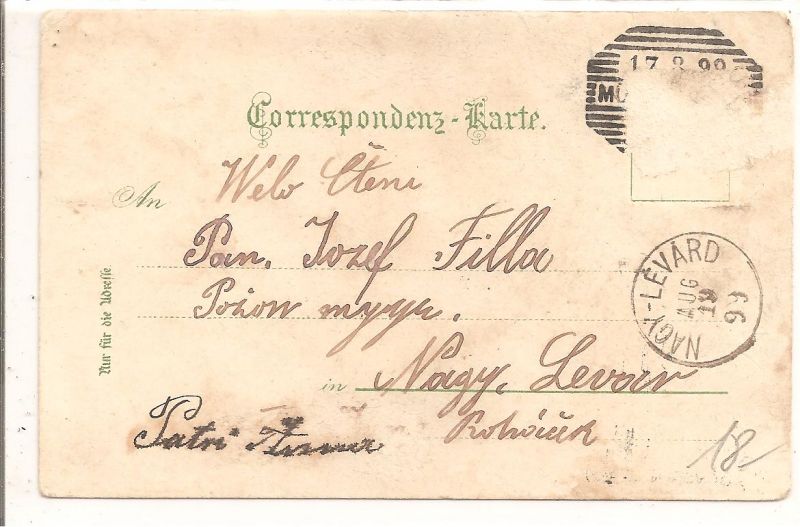 17 8 99
MÜ
Correspondenz-Karte.
An
Welo Čteni
Pan. Jozef Filla
Požon megye.
in Nagy. Levar
Patri Anna
Roháček
Nur für die Adresse
NAGY-LÉVÁRD
AUG
19
99
18-